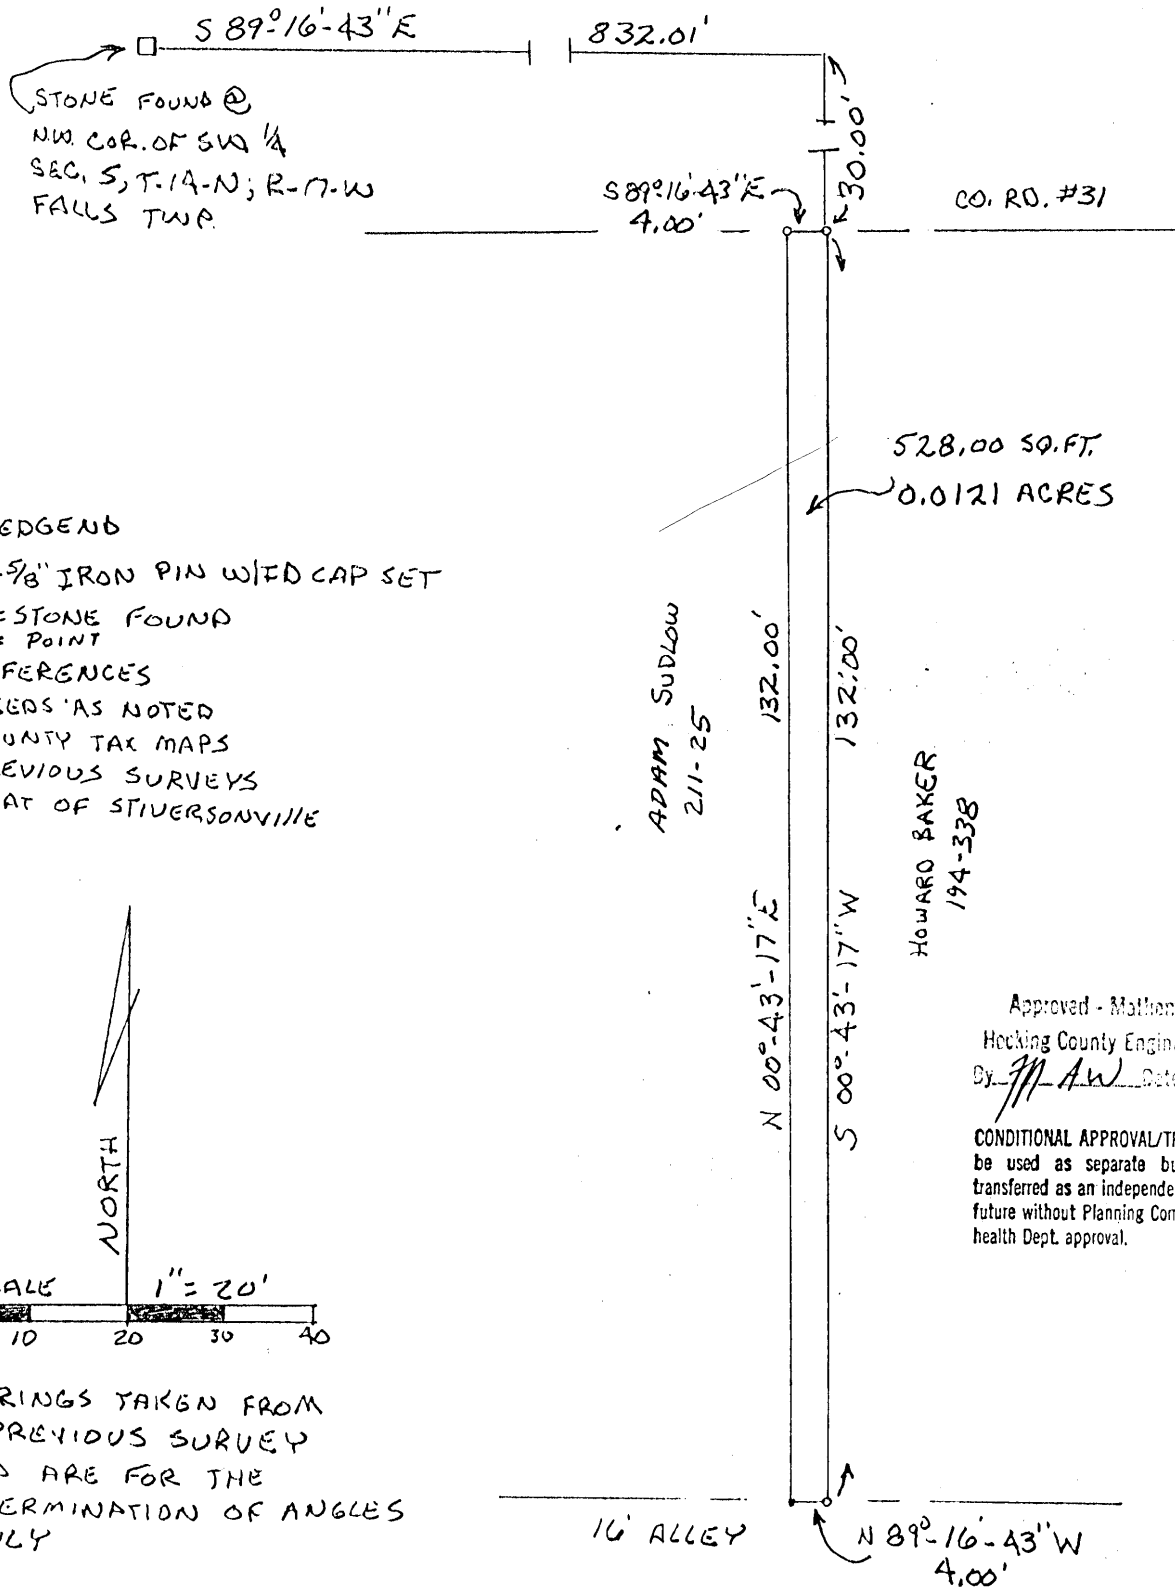 S 89°-16'-43"E
832.01'
STONE FOUND @
N.W. COR. OF SW 1/4
SEC. 5, T-14-N; R-17-W
FALLS TWP.
30.00'
S 89°-16'-43"E
4.00'
CO. RD. #31
528.00 SQ.FT.
0.0121 ACRES
EDGEND
5/8" IRON PIN W/ID CAP SET
=STONE FOUND
= POINT
FERENCES
EEDS AS NOTED
UNTY TAX MAPS
EVIOUS SURVEYS
AT OF STIVERSONVILLE
ADAM SUDLOW
211-25
132.00'
132.00'
HOWARD BAKER
194-338
N 00°-43'-17"E
S 00°-43'-17"W
Approved -
Hocking County Engin
By
CONDITIONAL APPROVAL/TR
be used as separate bu
transferred as an independe
future without Planning Con
health Dept. approval.
NORTH
ALE 1"= 20'
10 20 30 40
RINGS TAKEN FROM
PREVIOUS SURVEY
D ARE FOR THE
ERMINATION OF ANGLES
LY
16' ALLEY
N 89°-16'-43"W
4.00'